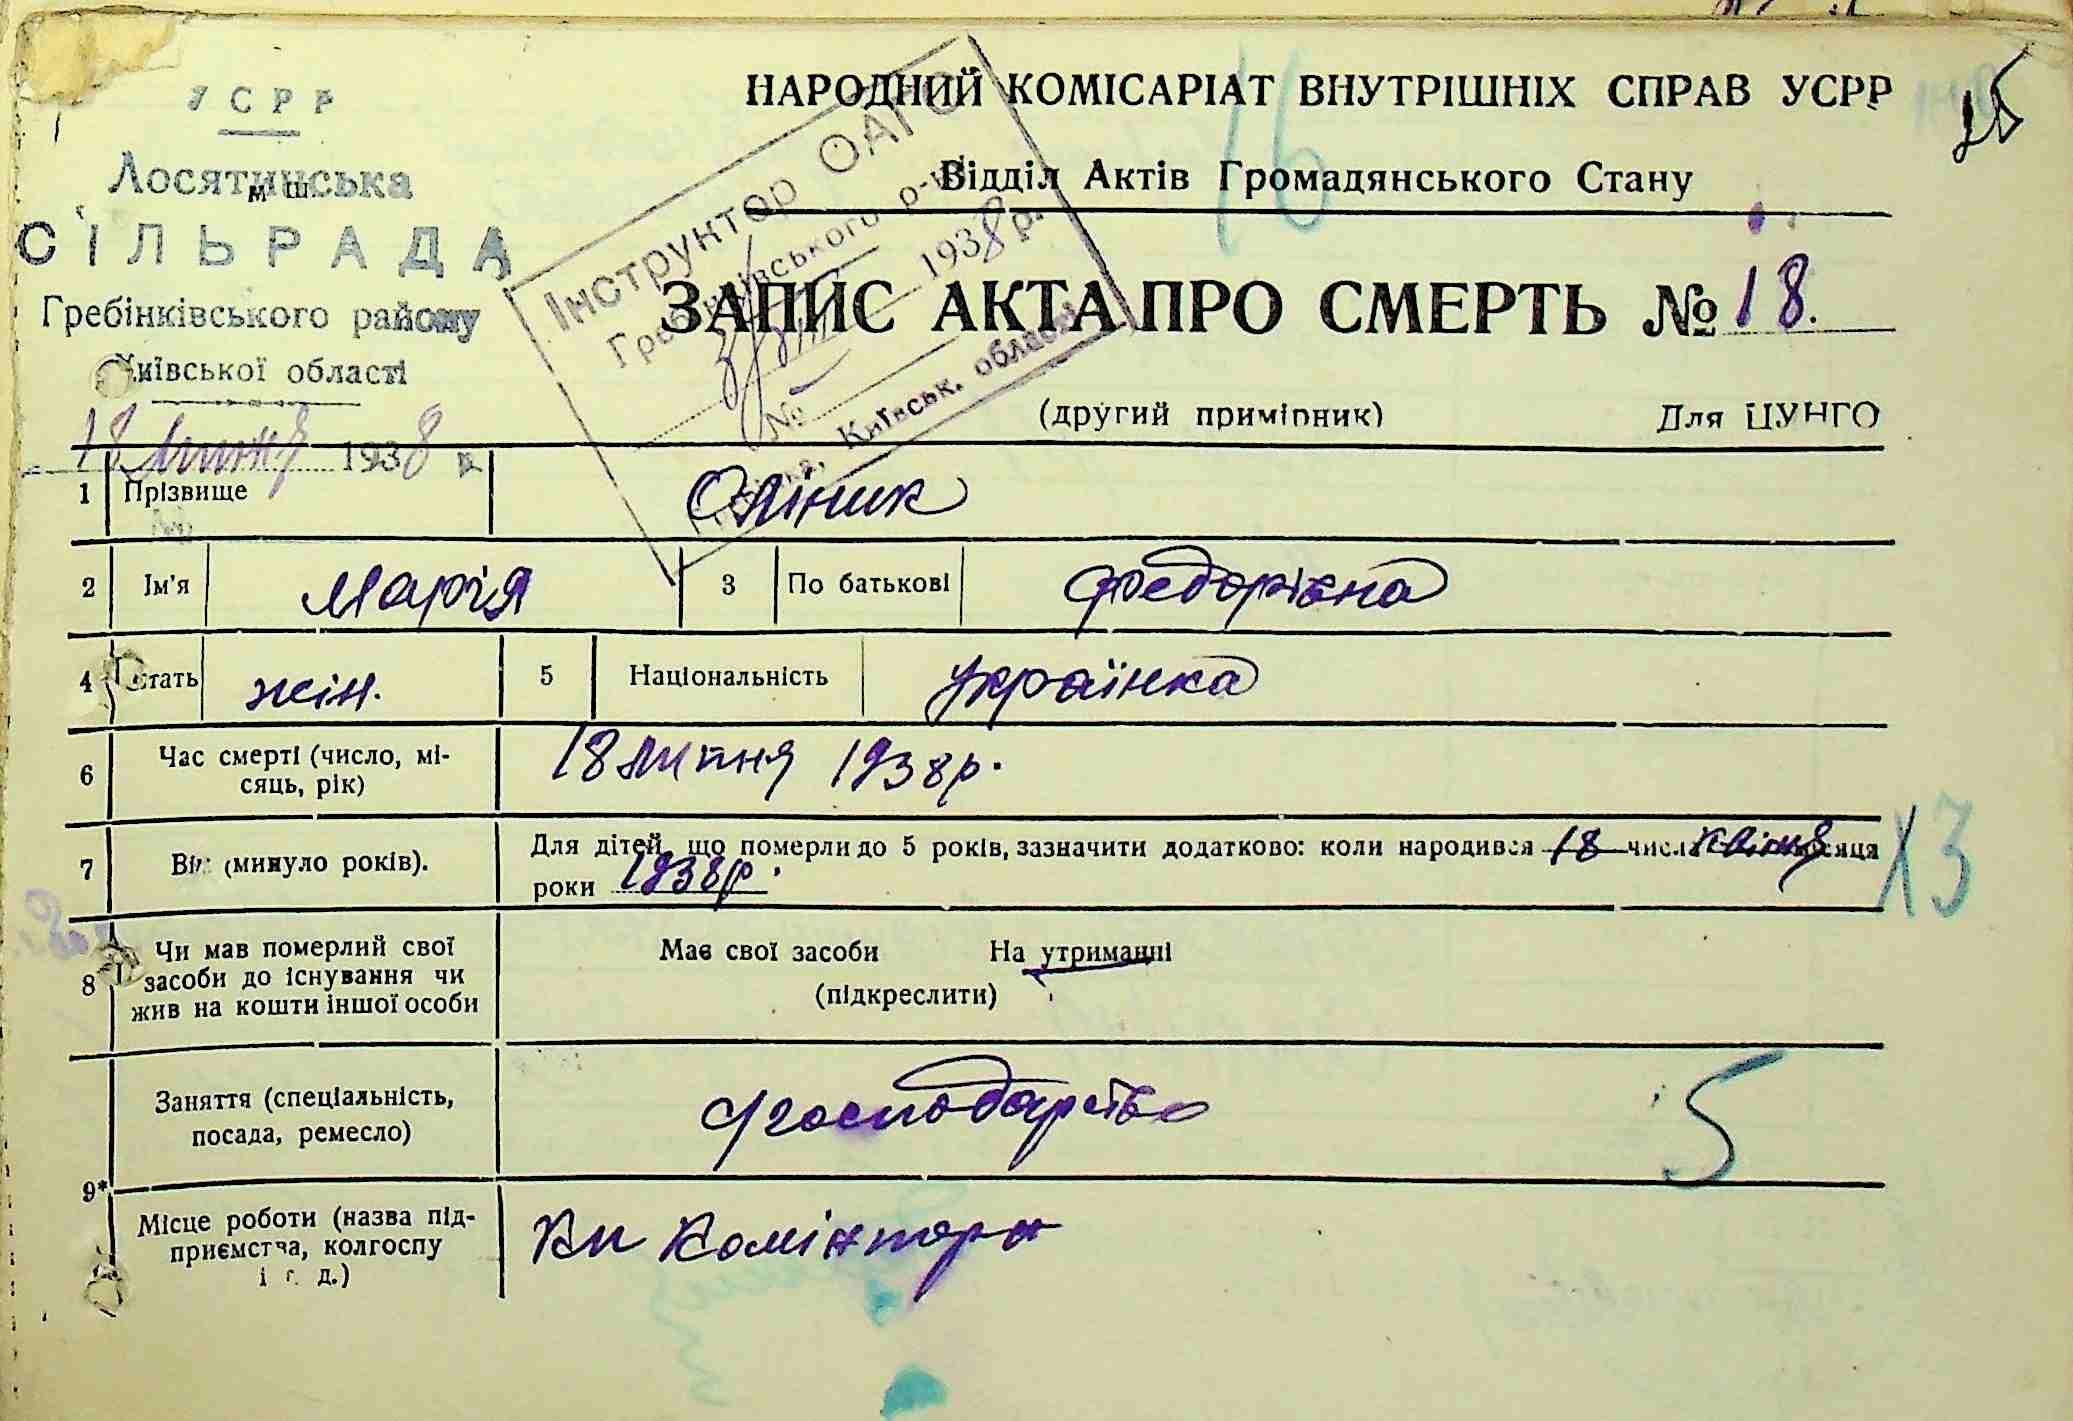 УСРР
Лосятинська
СІЛЬРАДА
Гребінківського району
Київської області
18 липня 1938 р.
НАРОДНИЙ КОМІСАРІАТ ВНУТРІШНІХ СПРАВ УСРР
Відділ Актів Громадянського Стану
Інструктор ОАГС
Гребінківського р-ну
1938 р.
№
Київськ. області
16
ЗАПИС АКТА ПРО СМЕРТЬ № 18.
(другий примірник) Для ЦУНГО
1 Прізвище Оліник
2 Ім'я Марія 3 По батькові Федорівна
4 Стать жін. 5 Національність українка
6 Час смерті (число, мі-
сяць, рік) 18 липня 1938 р.
7 Вік (минуло років). Для дітей, що померли до 5 років, зазначити додатково: коли народився 18 числа квітня місяця
роки 1938 р.
Х3
8 Чи мав померлий свої
засоби до існування чи
жив на кошти іншої особи
Має свої засоби На утриманні
(підкреслити)
9*
Заняття (спеціальність,
посада, ремесло) господарство
5
Місце роботи (назва під-
приємства, колгоспу
і т. д.)
Комінтерн